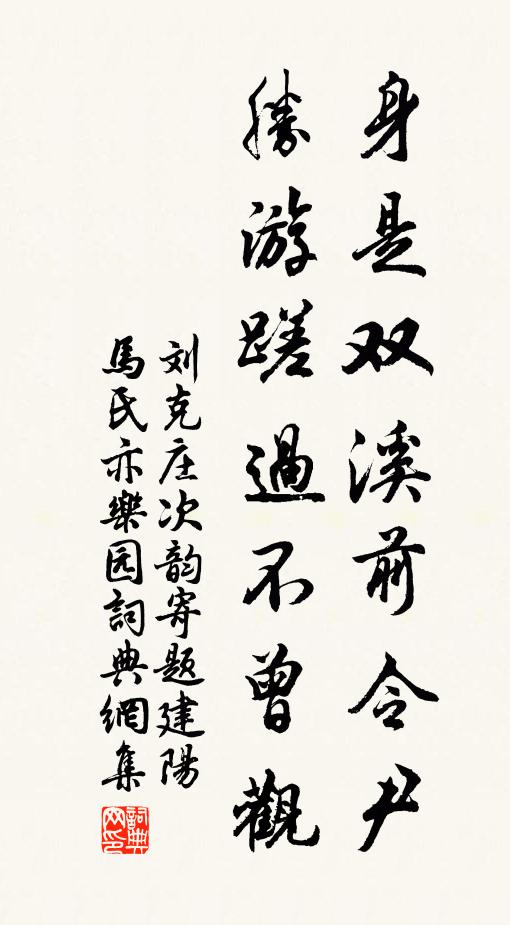 身是双溪前令尹
勝游蹉過不曾觀
刘克庄次韵寄题建陽
馬氏亦樂园詞典網集
詞典
网印